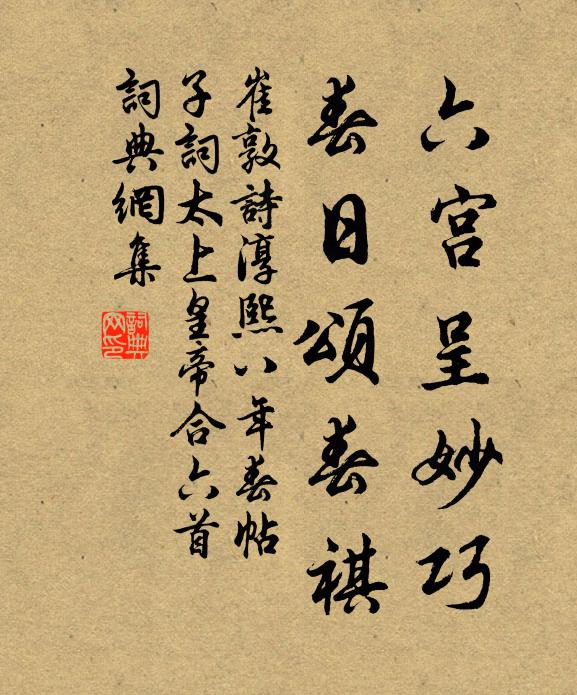 六宮呈妙巧
春日頌春祺
崔敦詩淳熙八年春帖
子詞太上皇帝合六首
詞典網集
詞典网印